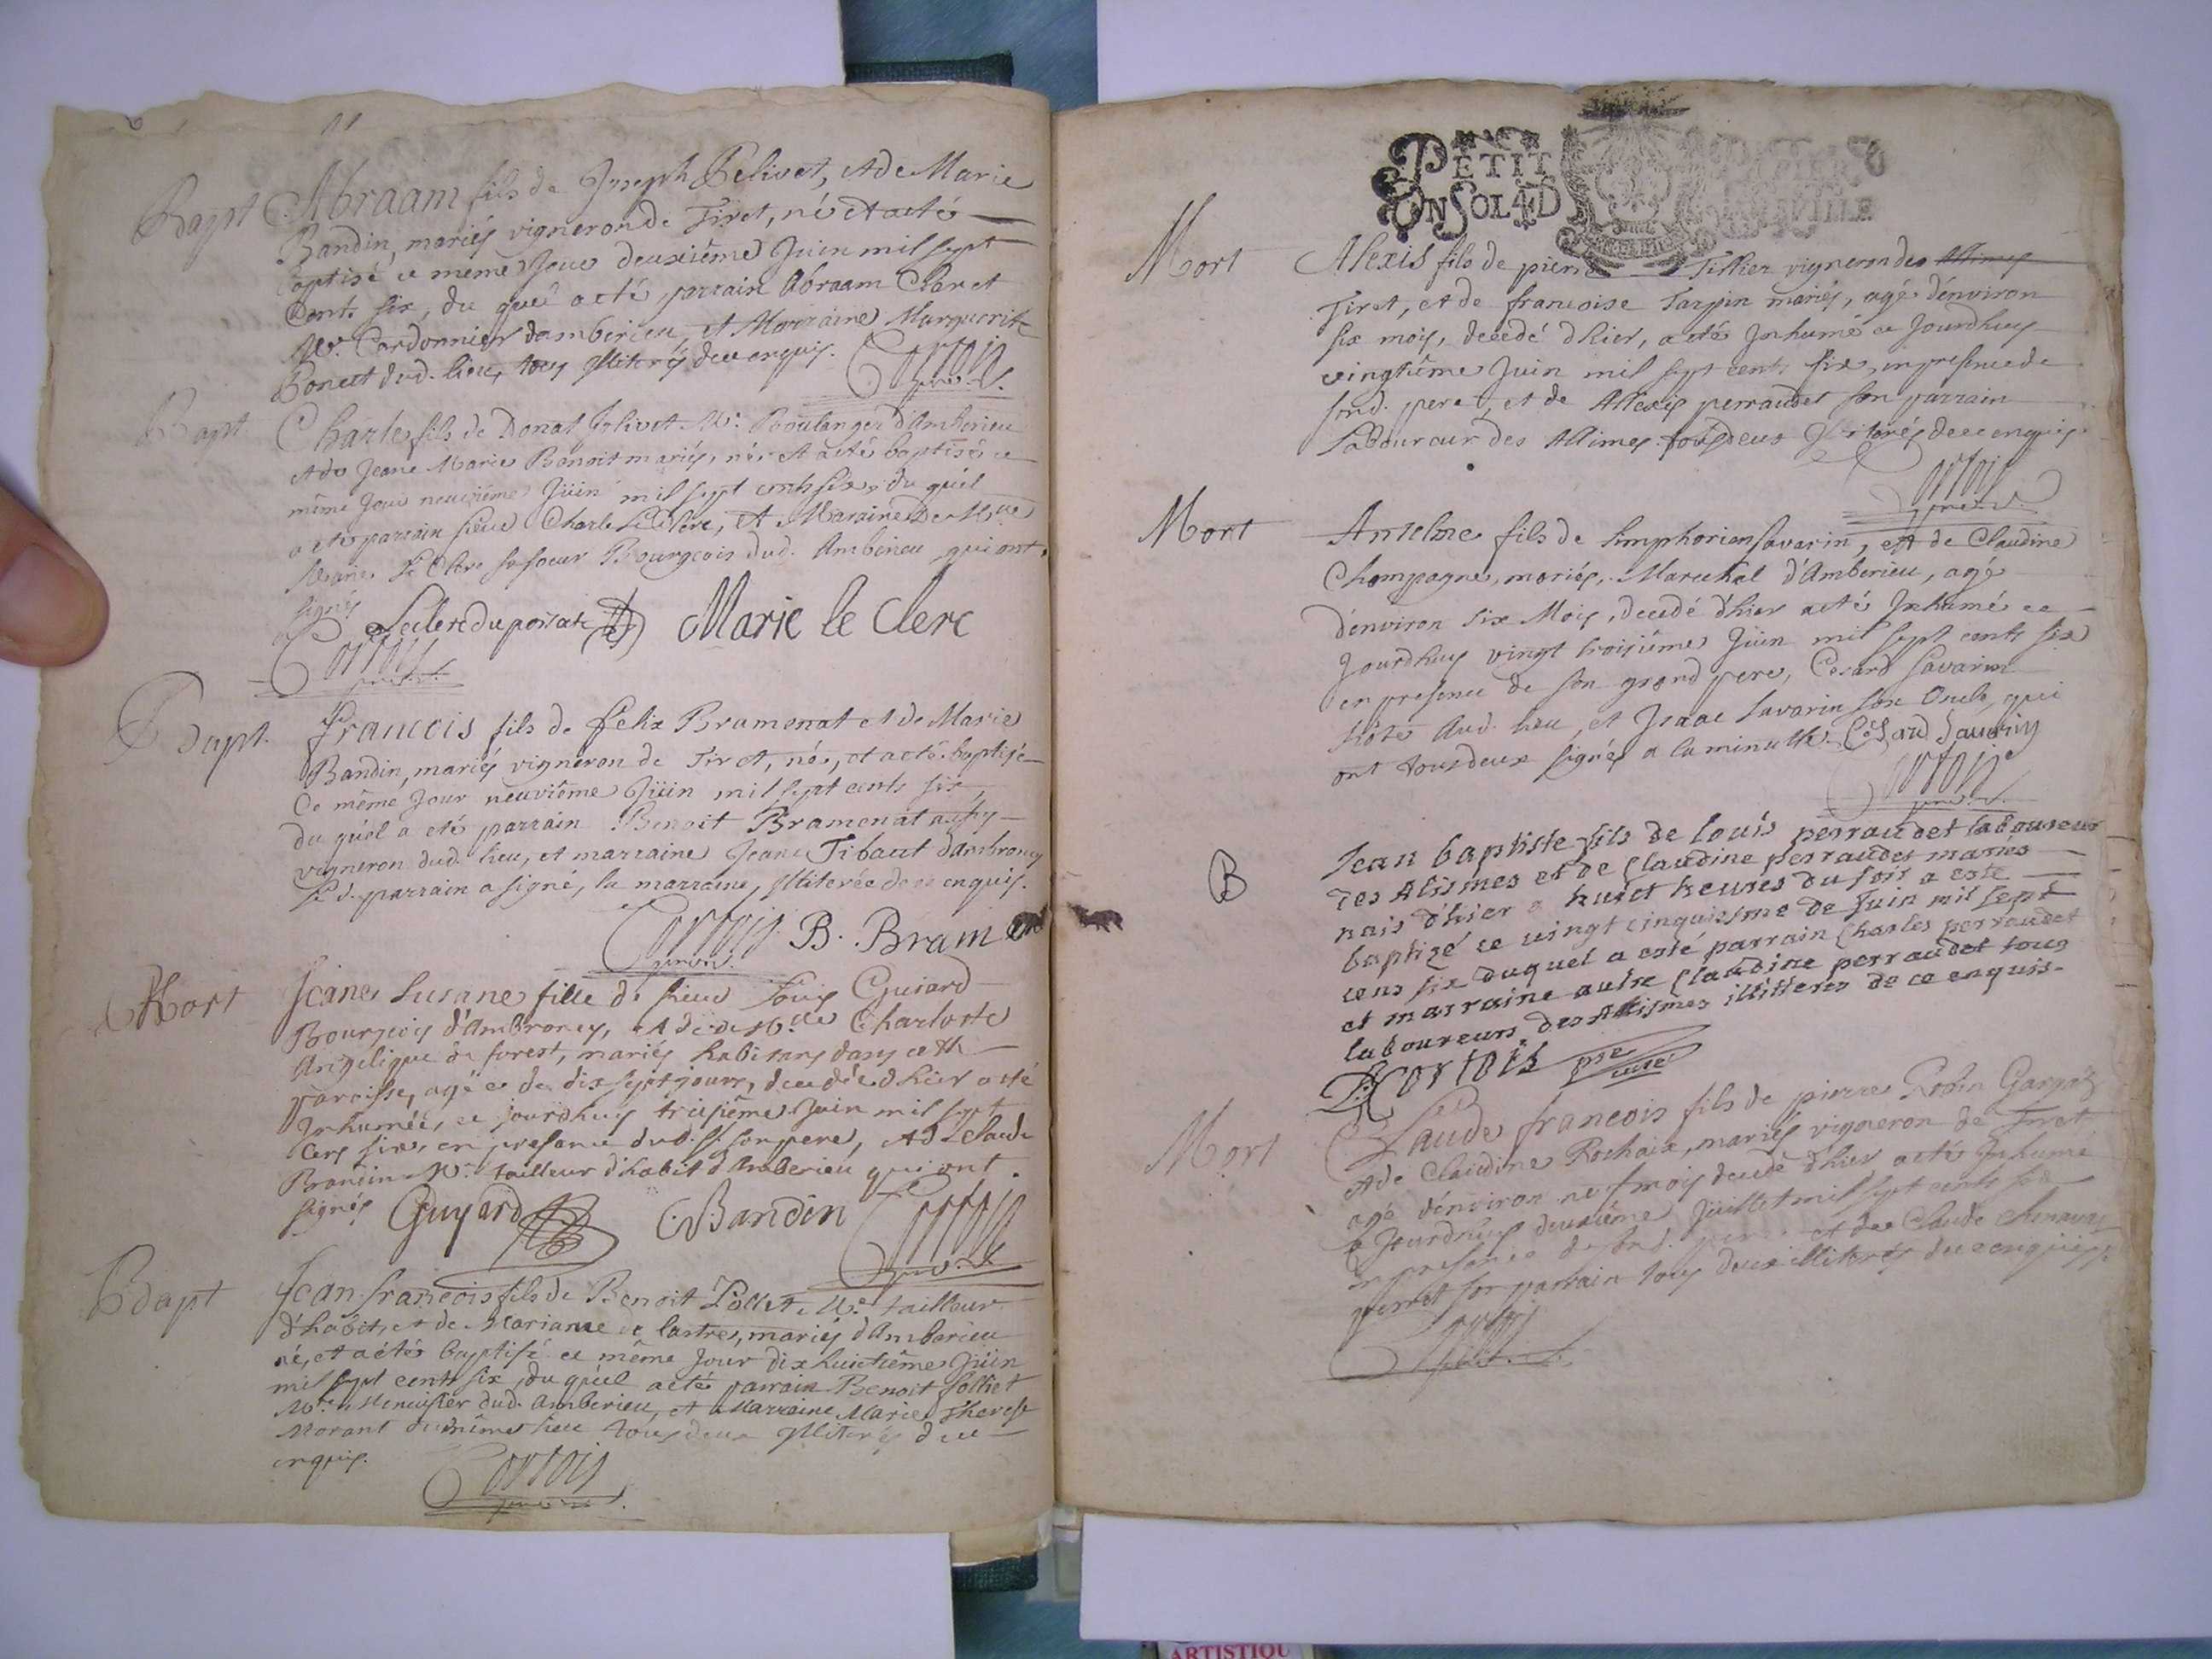 Bapt Abraam fils de Joseph Belivet, et de Marie
Bandin, mariés vigneron de Tiret, né et acté
baptisé ce même Jour deuxiême Juin mil sept
cents six, du quel acté parrain Abraam
Mr. Cordonnier damberieu, et Marraine Marguerite
Bonet dud. lieu, tous Illiterés dece enquis.
Cortois
Bapt Charle fils de Donat Jolivet Mr. Boulanger d'Amberieu
et de Jeane Marie Benoit mariés, né et acté baptisé ce
même Jour neuviéme Jüin mil sept cents six, du quel
a eté parrain sieur Charle Le Clerc, et Maraine De Mlle
Marie Le Clerc sa soeur Bourgeois dud. Amberieu qui ont
signés
Leclerc du poisat Marie le Clerc
Cortois
Bapt. francois fils de felix Bramenat et de Marie
Bandin, mariés vigneron de Tiret, né, et acté baptisé
Ce même Jour neuviême Jüin mil sept cents six,
du quel a eté parrain Benoit Bramenat aussy
vigneron dud. lieu, et marraine Jeane Tibaut dambroney
Le d. parrain a signé, la marraine, Illiterée de ce enquis.
Cortois B. Bramen
Mort Jeane Susane fille de sieur Louis Guiard
Bourgeois d'Ambroney, et de De Mlle Charlotte
Angelique de forest, mariés habitans dans cette
paroisse, agée de dix sept jours, decedée d'hier acté
Inhumée, ce jourdhuy treisiême Juin mil sept
cens six, en presence dud. sr. son pere, et de Claude
Bandin Mr. tailleur d'habit d'Amberieu qui ont
signés Guyard C. Bandin Cortois
Bapt Jean francois fils de Benoit Pollet Mr. tailleur
d'habit, et de Mariane de lastre, mariés d'Amberieu
né, et acté baptisé ce même Jour dix huictiême Jüin
mil sept cents six, du quel acté parrain Benoit Folliet
Mre. Menuisier dud. Amberieu, et Marraine Marie Therese
Morant du même lieu tous deux Illiterés de ce
enquis.
Cortois
PETIT
EN SOL 4 D
Mort Alexis fils de pierre Tillier vigneron des Allimes
Tiret, et de francoise Tarpin mariés, agé d'énviron
six mois, decedé d'hier, acté Inhumé ce Jourdhuy
vingtiême Juin mil sept cents six, en presence de
sond. pere, et de Allexis perraudet son parrain
Laboureur des Allimes tous deux Illiterés de ce enquis
Cortois
Mort Anselme fils de Simphorien Savarin, et de Claudine
Champagne, mariés, Marechal d'Amberieu, agé
d'énviron six Mois, decedé d'hier acté Inhumé ce
Jourdhuy vingt troisiême Jüin mil sept cents six
en presence de son grand pere, Cesard Savarin
hôte dud. lieu, et Isaac Savarin son Oncle, qui
ont tous deux signés a la minutte. Césard Sauarin
Cortois
B Jean baptiste fils de louis perraudet laboureur
des Alismes et de Claudine perraudet mariés
nais d'hier a huict heures du soir a esté
baptizé ce vingt cinquiesme de Juin mil sept
cens six duquel a esté parrain Charles perraudet
et marraine autre Claudine perraudet tous
laboureurs des Alismes illitteres de ce enquis
Cortois pre curé
Mort Claude francois fils de pierre Robin
et de Claudine Rochaix, mariés vigneron de Tiret
agé d'énviron nef mois decedé d'hier acté Inhumé
ce Jourdhuy deuxiême Jüillet mil sept cents six
en presence de sond. pere et de Claude
perret son parrain tous deux illiterés de ce enquis
Cortois
ARTISTIQU